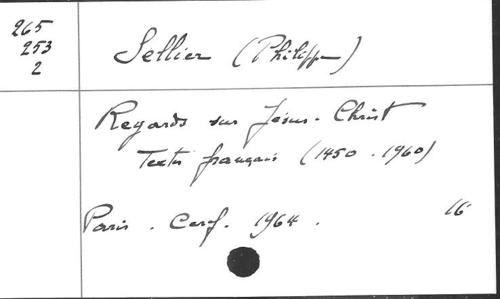 265
253
2
Sellier (Philippe)
Regards sur Jésus-Christ
Textes français (1450-1960)
Paris. Cerf. 1964.
16